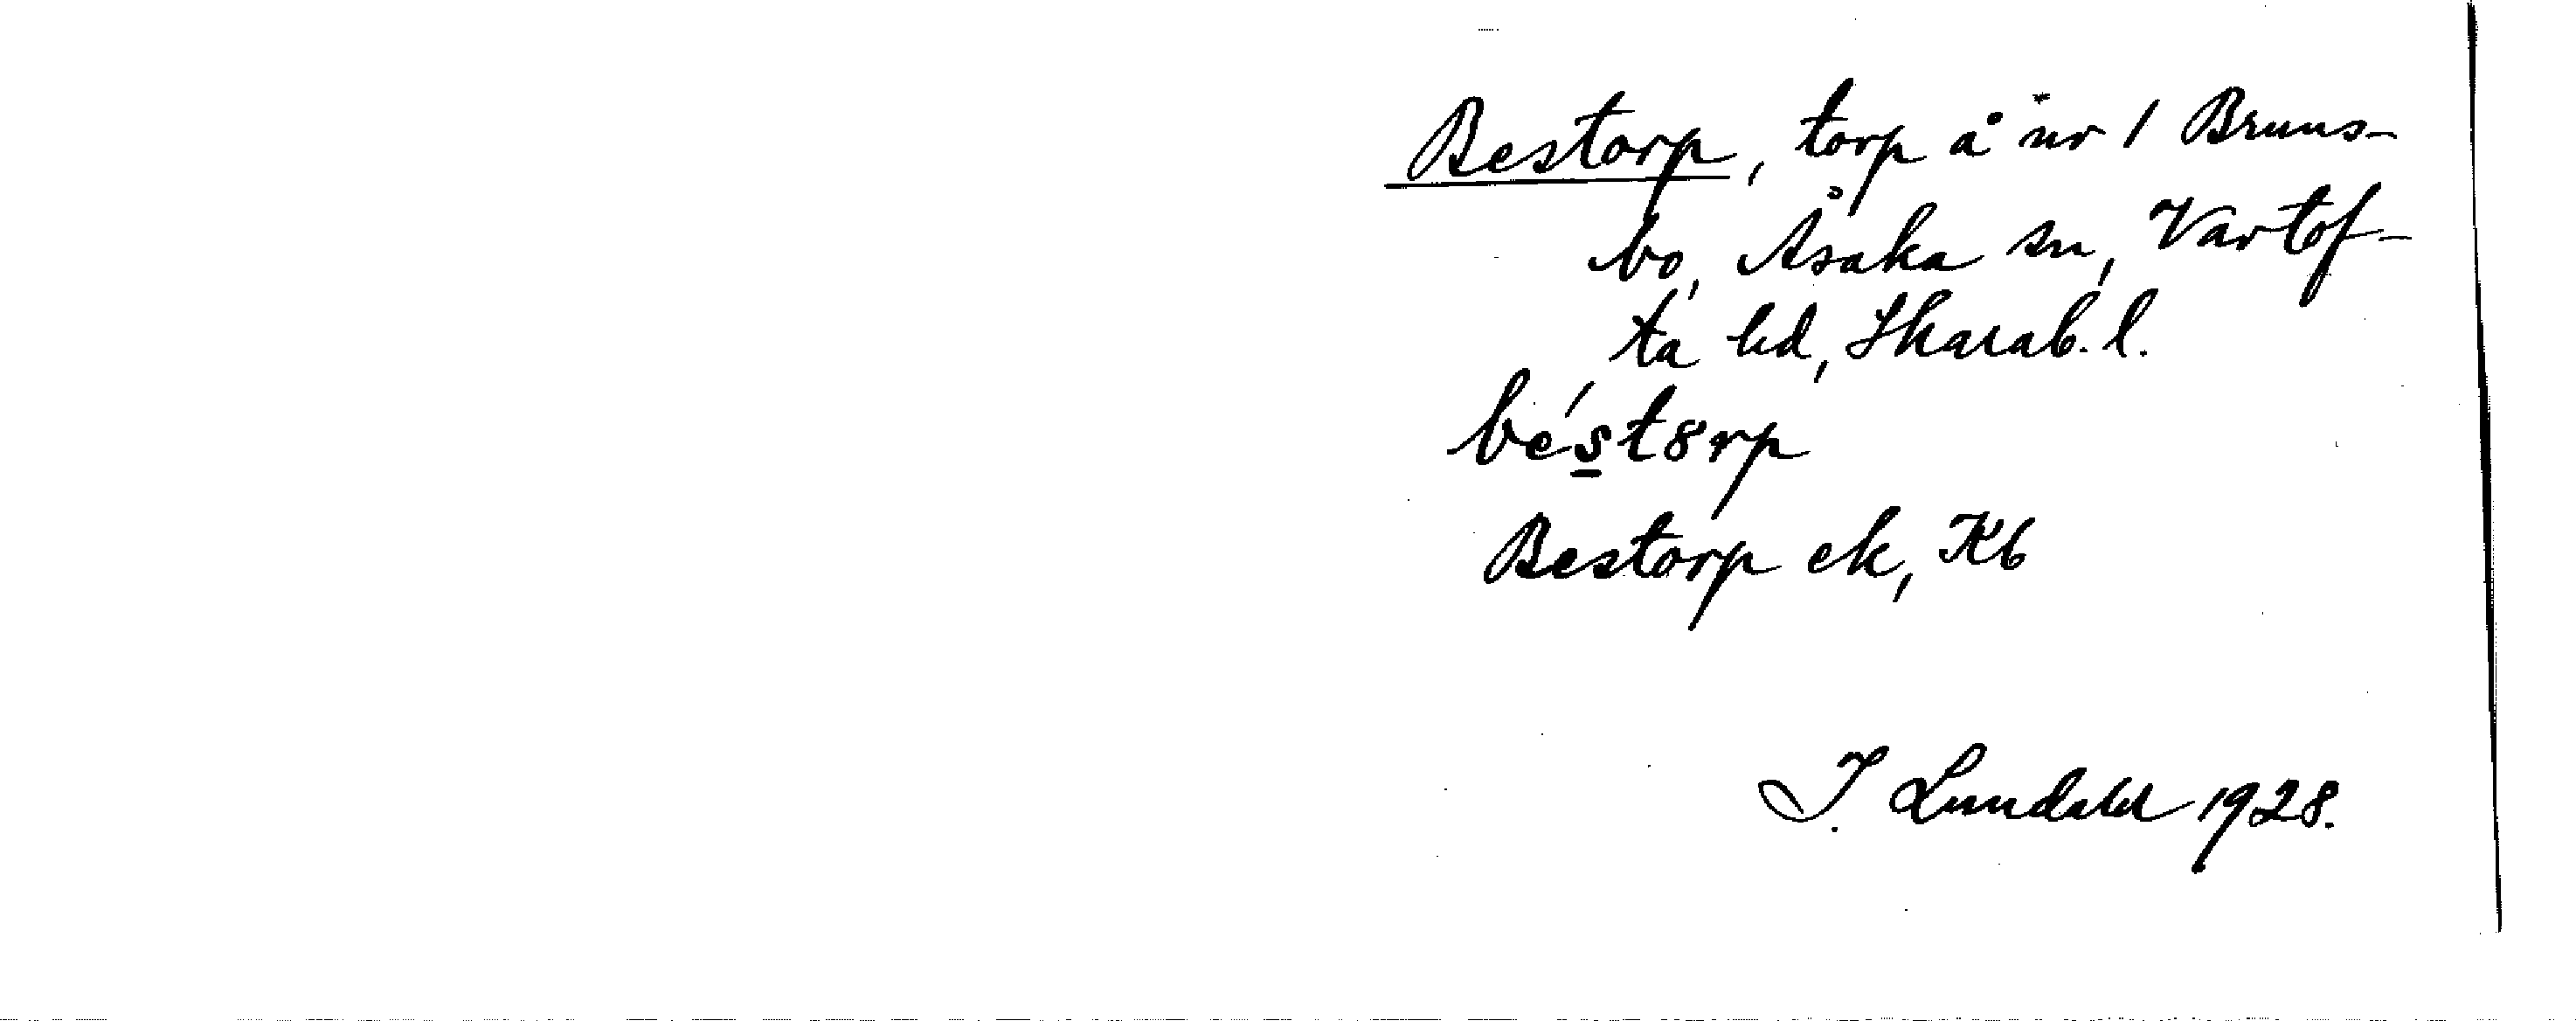 Bestorp, torp å nr 1 Bruns-
bo, Åsaka sn, Vartof-
ta hd, Skarab. l.
bés̲t8rp
Bestorp ek, Kb
I. Lundahl 1928.